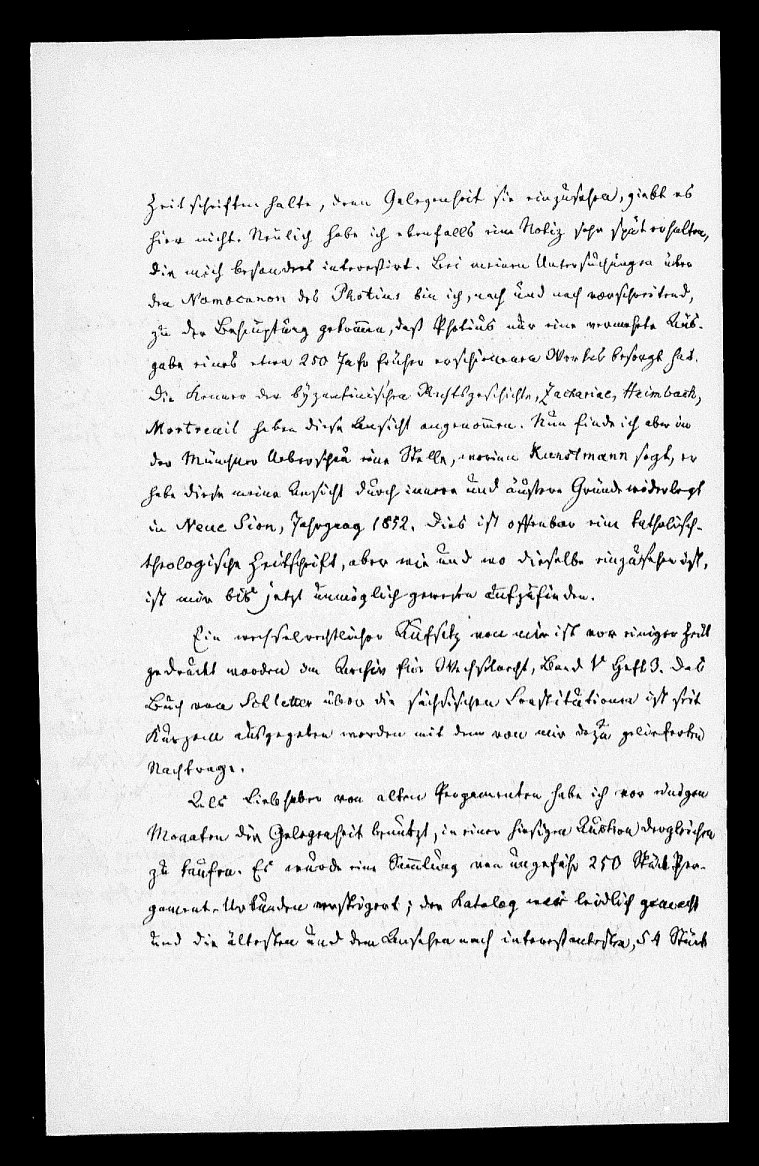 Zeitschriften halte, denn Gelegenheit sie einzusehen, giebt es
hier nicht. Neulich habe ich ebenfalls eine Notiz sehr spät erhalten,
die mich besonders interessirt. Bei meinen Untersuchungen über
den Nomocanon des Photius bin ich, nach und nach vorschreitend,
zu der Behauptung gekommen, daß Photius nur eine vermehrte Aus-
gabe eines etwa 250 Jahr früher erschienenen Werkes besorgt hat.
Die Kenner der byzantinischen Rechtsgeschichte, Zachariae, Heimbach,
Mortreuil haben diese Ansicht angenommen. Nun finde ich aber in
der Münchner Ueberschau eine Stelle, worinn Kunstmann sagt, er
habe diese meine Ansicht durch innere und äußere Gründe widerlegt
in Neue Sion, Jahrgang 1852. Dies ist offenbar eine katholisch-
theologische Zeitschrift, aber wie und wo dieselbe einzusehen ist,
ist mir bis jetzt unmöglich gewesen aufzufinden.
Ein wechselrechtlicher Aufsatz von mir ist vor einiger Zeit
gedruckt worden im Archiv für Wechselrecht, Band V Heft 3. Das
Buch von Schletter über die sächsischen Constitutionen ist seit
Kurzem ausgegeben worden mit dem von mir dazu gelieferten
Nachtrage.
Als Liebhaber von alten Pergamenten habe ich vor einigen
Monaten die Gelegenheit benützt, in einer hiesigen Auction dergleichen
zu kaufen. Es wurde eine Sammlung von ungefähr 250 Stück Per-
gament-Urkunden versteigert; der Katalog war leidlich gemacht
und die ältesten und dem Ansehen nach interessantesten, 54 Stück